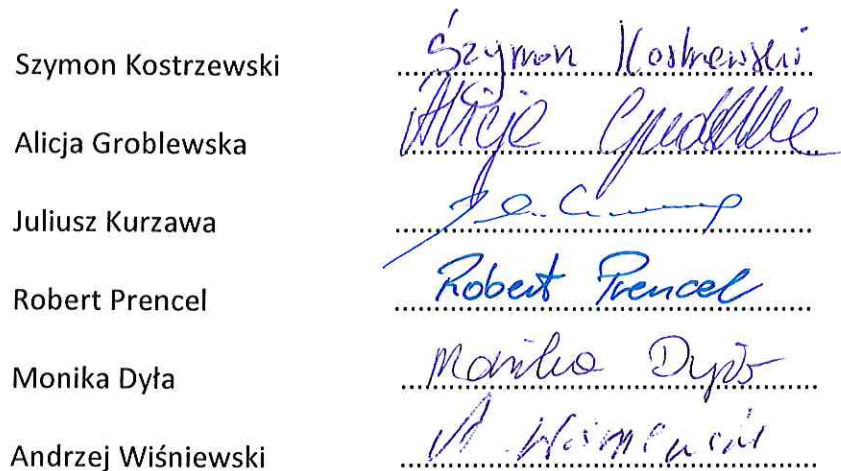 Szymon Kostrzewski Szymon Kostrzewski
Alicja Groblewska Alicja
Juliusz Kurzawa
Robert Prencel Robert Prencel
Monika Dyła Monika Dyła
Andrzej Wiśniewski A Wiśniewski